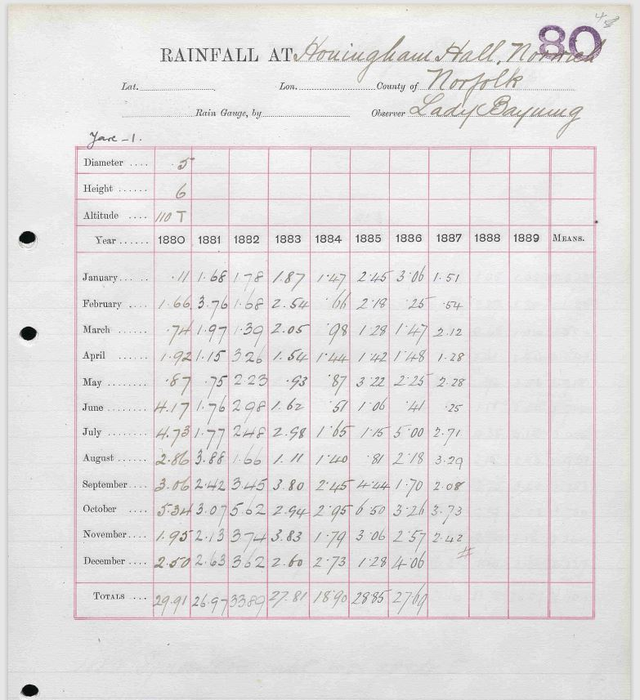 80
RAINFALL AT Honingham Hall, Norwich
Lat. Lon. County of Norfolk
Rain Gauge, by Observer Lady Bayning
Yare - 1.
Diameter .... .5
Height ...... 6
Altitude .... 110 T
Year ...... 1880 1881 1882 1883 1884 1885 1886 1887 1888 1889 MEANS.
January ...... .11 1.68 1.78 1.87 1.47 2.45 3.06 1.51
February .... 1.66 3.76 1.68 2.54 .66 2.18 .25 .54
March ...... .74 1.97 1.39 2.05 .98 1.28 1.47 2.12
April ...... 1.92 1.15 3.26 1.54 1.44 1.42 1.48 1.28
May ...... .87 .75 2.23 .93 .87 3.22 2.25 2.28
June ...... 4.17 1.76 2.98 1.62 .51 1.06 .41 .25
July ...... 4.73 1.77 2.48 2.98 1.65 1.15 5.00 2.71
August ...... 2.86 3.88 1.66 1.11 1.40 .81 2.18 3.29
September .... 3.06 2.42 3.45 3.80 2.45 4.44 1.70 2.08
October .... 5.34 3.07 5.62 2.94 2.95 6.50 3.26 3.73
November .... 1.95 2.13 3.74 3.83 1.79 3.06 2.57 2.42
December .... 2.50 2.63 3.62 2.60 2.73 1.28 4.06 #
TOTALS ... 29.91 26.97 33.89 27.81 18.90 28.85 27.69